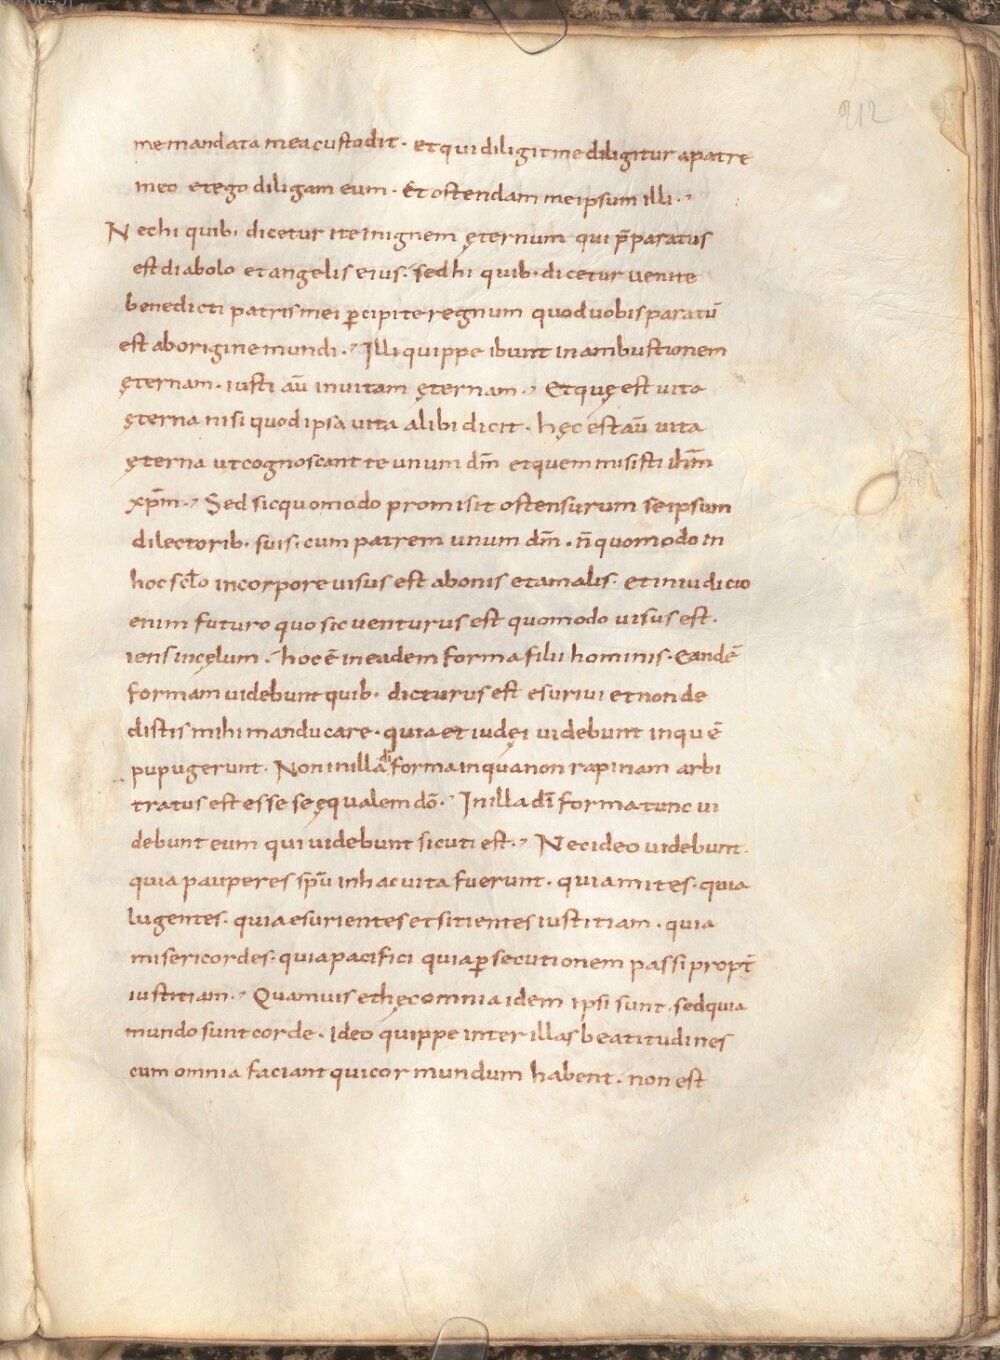 212
me mandata mea custodit · et qui diligit me diligitur a patre
meo et ego diligam eum · Et ostendam me ipsum illi ·,
Nec hi quib; dicetur ite in ignem ęternum qui p̄paratus
est diabolo et angelis eius · sed hi quib · dicetur uenite
benedicti patris mei ꝑcipite regnum quod uobis paratū
est ab origine mundi ·, Illi quippe ibunt in ambustionem
ęternam · iusti aū in uitam ęternam ·, Et quę est uita
ęterna nisi quod ipsa uita alibi dicit · hęc est aū uita
ęterna ut cognoscant te unum dm̄ et quem misisti ihm̄
xpm̄ ·, Sed sic quomodo promisit ostensurum se ipsum
dilectorib · suis · cum patrem unum dm̄ · n̄ quomodo in
hoc sclo in corpore uisus est a bonis et a malis · et in iudicio
enim futuro quo sic uenturus est quomodo uisus est ·
iens in cęlum · hoc ē in eadem forma filii hominis · Eandē
formam uidebunt quib · dicturus est esuriui et non de
distis mihi manducare · quia et iudęi uidebunt in quē
pupugerunt · Non in illa di forma in qua non rapinam arbi
tratus est esse se ęqualem dō ·, In illa dī forma tunc ui
debunt eum qui uidebunt sicuti est ·, Nec ideo uidebunt ·
quia pauperes spū in hac uita fuerunt · quia mites · quia
lugentes · quia esurientes et sitientes iustitiam · quia
misericordes · quia pacifici quia ꝑsecutionem passi propt̄
iustitiam ·, Quamuis et hęc omnia idem ipsi sunt · sed quia
mundo sunt corde · Ideo quippe inter illas beatitudines
cum omnia faciant qui cor mundum habent · non est